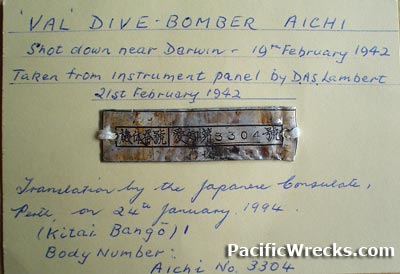 'VAL' DIVE-BOMBER AICHI
Shot down near Darwin - 19th February 1942
Taken from instrument panel by D.A.S. Lambert
21st February 1942
機体番號 愛知第3304號
Translation by the Japanese Consulate,
Perth, on 24th January 1994.
(Kitai Bangō)
Body Number:
Aichi No. 3304
PacificWrecks.com